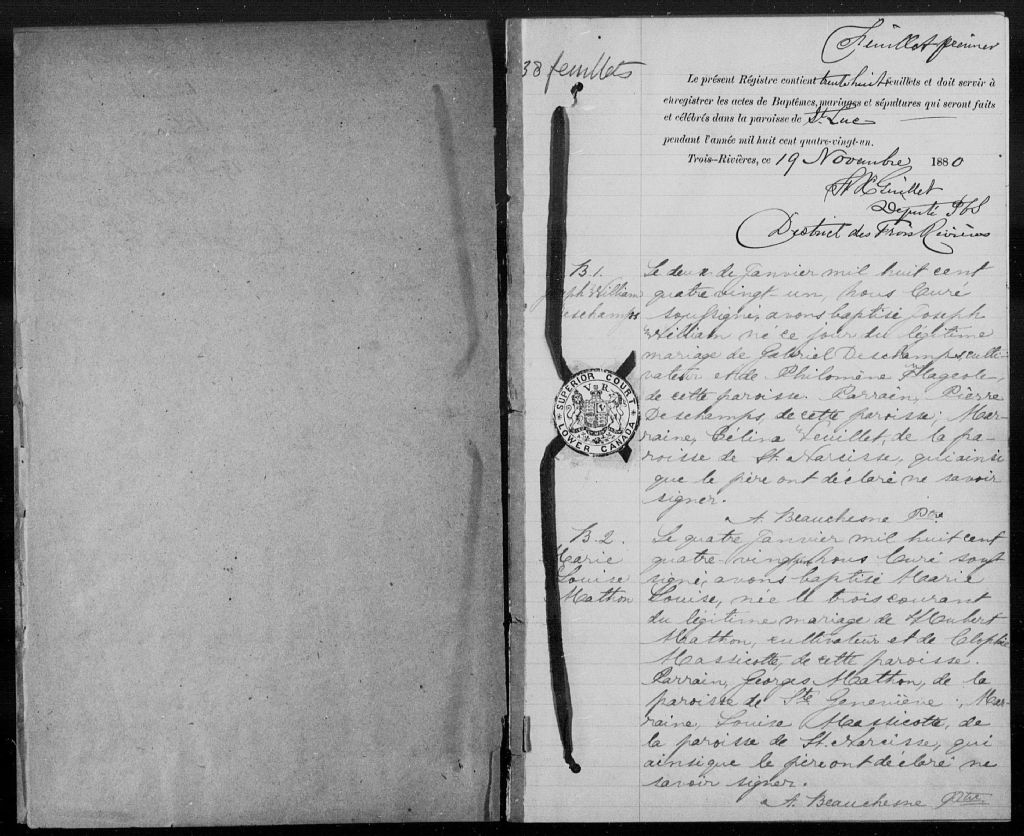 Feuillet premier
38 feuillets
Le présent Régistre contient trente huit feuillets et doit servir à
enregistrer les actes de Baptêmes, mariages et sépultures qui seront faits
et célébrés dans la paroisse de St. Luc
pendant l'année mil huit cent quatre-vingt-un.
Trois-Rivières, ce 19 Novembre 1880
Guillet
Député P C S
District des Trois Rivières
B. 1.
Joseph William
Deschamps
Le deux de Janvier mil huit cent
quatre vingt-un, nous Curé
soussigné, avons baptisé Joseph
William né ce jour du légitime
mariage de Gabriel Deschamps, culti-
vateur et de Philomène Mageole,
de cette paroisse. Parrain, Pierre
Deschamps, de cette paroisse; Mar-
raine, Célina Veuillet, de la pa-
roisse de St. Narsisse, qui ainsi
que le père ont déclaré ne savoir
signer.
A. Beauchesne Ptre
SUPERIOR COURT
V R
LOWER CANADA
B. 2.
Marie
Louise
Mathon
Le quatre Janvier mil huit cent
quatre-vingt-un nous Curé sous-
signé, avons baptisé Marie
Louise, née le trois courant
du légitime mariage de Hubert
Mathon, cultivateur et de
Massicotte, de cette paroisse.
Parrain, Georges Mathon, de la
paroisse de Ste Geneviève; Mar-
raine, Louise Massicotte, de
la paroisse de St. Narcisse, qui
ainsi que le père ont déclaré ne
savoir signer.
A. Beauchesne Ptre